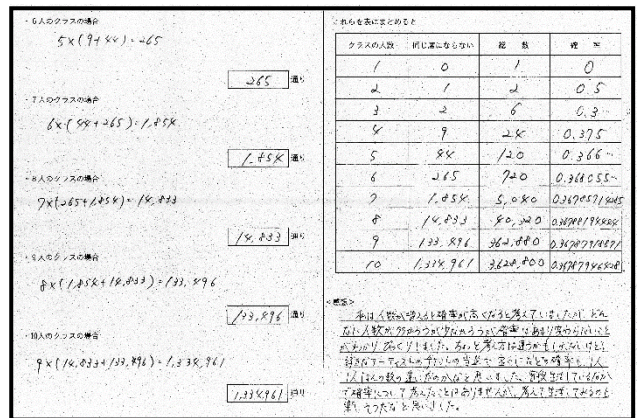 ・6人のクラスの場合
5×(9+44)=265
265 通り
・7人のクラスの場合
6×(44+265)=1,854
1,854 通り
・8人のクラスの場合
7×(265+1,854)=14,833
14,833 通り
・9人のクラスの場合
8×(1,854+14,833)=133,496
133,496 通り
・10人のクラスの場合
9×(14,833+133,496)=1,334,961
1,334,961 通り
これらを表にまとめると
クラスの人数 同じ席にならない 総数 確率
1 0 1 0
2 1 2 0.5
3 2 6 0.3…
4 9 24 0.375
5 44 120 0.366…
6 265 720 0.368055…
7 1,854 5,040 0.36785714285
8 14,833 40,320
9 133,496 362,880
10 1,334,961 3,628,800
<感想>
私は人数が増えると確率が高くなると考えていましたが、どん
なに人数が多かろうが少なかろうが確率はあまり変わらないこと
がわかり、びっくりしました。
好きなアーティストのチケットの
で確率について考えたことはありませんが、考えて生活してみるのも
楽しそうだなと思いました。